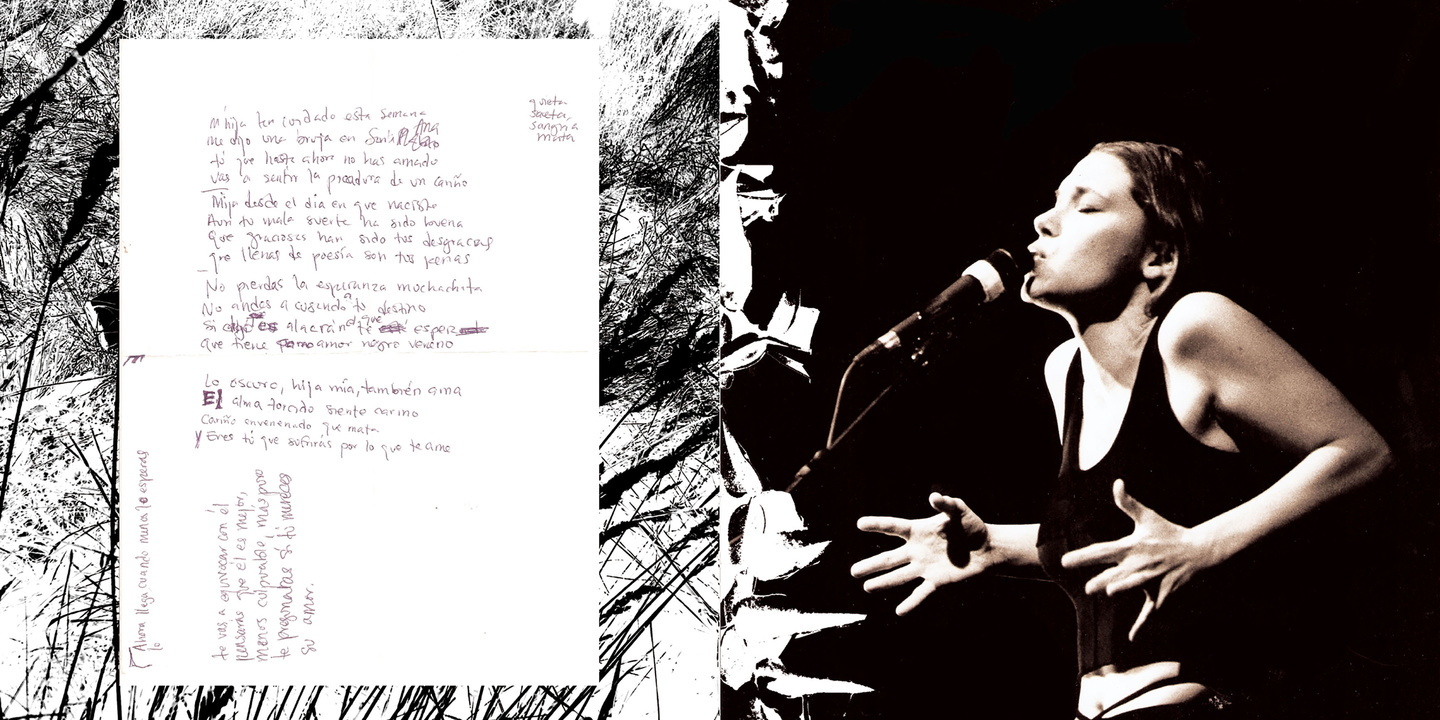 Mi hija ten cuidado esta semana
me dijo una bruja en Santa Ana
tú que hasta ahora no has amado
vas a sentir la picadura de un cariño
Mija desde el dia en que naciste
Aun tu mala suerte ha sido buena
Que graciosas han sido tus desgracias
que llenas de poesía son tus penas
No pierdas la esperanza muchachita
No andes a cuscando a tu destino
Si alacrán que te esper
que tiene amor negro veneno
Lo oscuro, hija mía, también ama
El alma torcida siente carino
Cariño envenenado que mata
y Eres tú que sufrirás por lo que te ame
quieta
saeta,
sangra
mata
Ahora llega cuando menos lo esperas
lo
te vas a equivocar con él
pensarás que él es mejor,
menos culpable más puro
te preguntas si tú mereces
su amor.